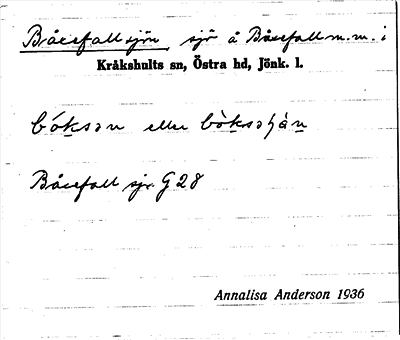 Båcefallsjön sjö å Båcefall m.m. i
Kråkshults sn, Östra hd, Jönk. l.
bóksən eller bòksəʃə́n
Båcefall sjr. G 28
Annalisa Anderson 1936